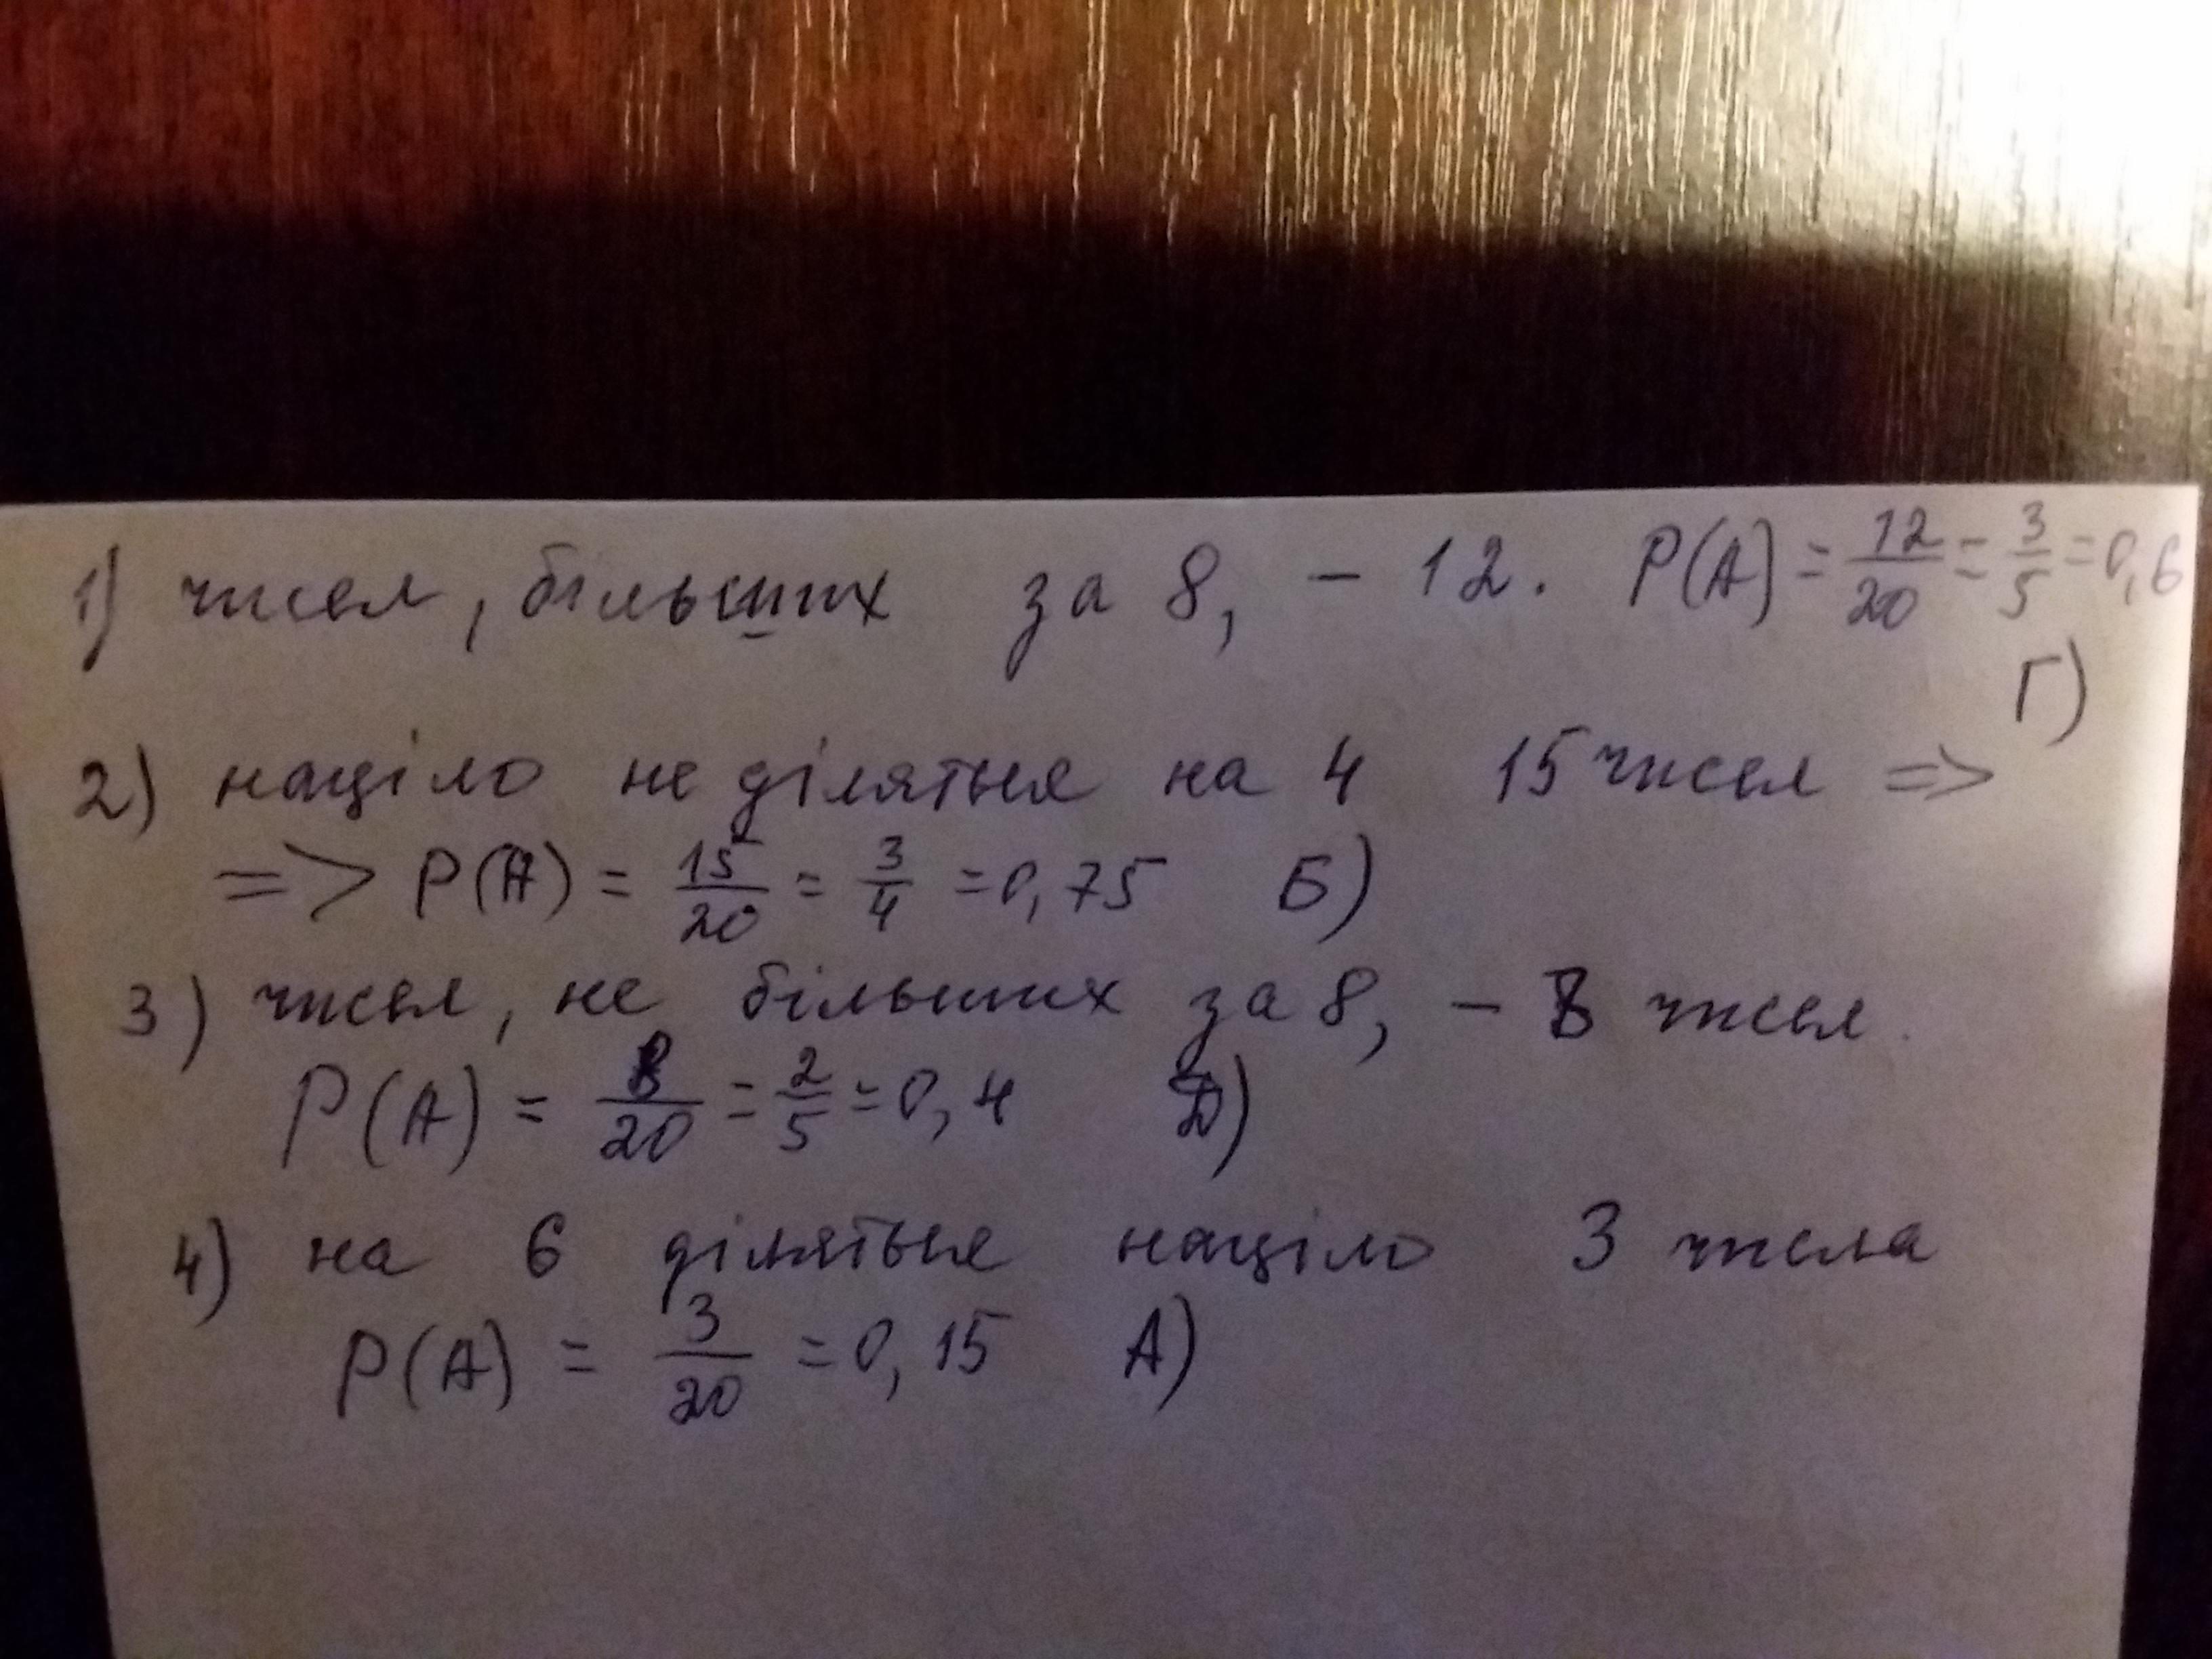 1) чисел, більших за 8, – 12. P(A) = 12/20 = 3/5 = 0,6
Г)
2) націло не діляться на 4 15 чисел =>
=> P(A) = 15/20 = 3/4 = 0,75 Б)
3) чисел, не більших за 8, – 8 чисел.
P(A) = 8/20 = 2/5 = 0,4 Д)
4) на 6 діляться націло 3 числа
P(A) = 3/20 = 0,15 А)